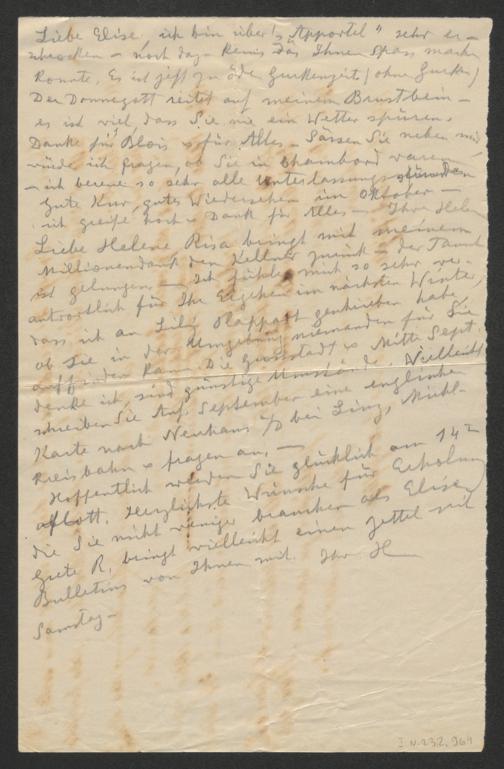 Liebe Elise ich bin über "Apportel" sehr er-
schrocken – noch dazu Remis das Ihnen Spass machen
konnte. Es ist jetzt zu öde Gurkenzeit (ohne Gurken)
Der Donnergott reitet auf meinem Brustbein –
es ist viel, dass Sie nie ein Wetter spüren.
Danke für Blois & für Alles – Sässen Sie neben mir
würde ich fragen, ob Sie in Chambord waren
– ich bereue so sehr alle Unterlassungssünden
Gute Kur, gutes Wiedersehen im Oktober –
ich greife hoch & Dank für Alles – Ihre Helen
Liebe Helene Risa bringt mit meinem
Millionendank den Kellner zurück – der Tausch
ist gelungen – Ich fühle mich so sehr ver-
antwortlich für Ihr Ergehen im nächsten Winter,
dass ich an Lily Rappaport geschrieben habe,
ob Sie in der Umgebung niemanden für Sie
auffinden kann. Die Grosstadt & Mitte Sept.
denke ich, sind günstige Umstände. Vielleicht
schreiben Sie Anf. September eine englische
Karte nach Neuhaus a/D bei Linz, Mühl-
kreisbahn & fragen an. –
Hoffentlich werden Sie glücklich am 14ten
aflott. Herzlichste Wünsche für Erholung
die Sie nicht weniger brauchen als Elise
Grete R. bringt vielleicht einen Zettel mit
Bulletins von Ihnen mit. Ihr H
Samstag –
I.N. 232.964